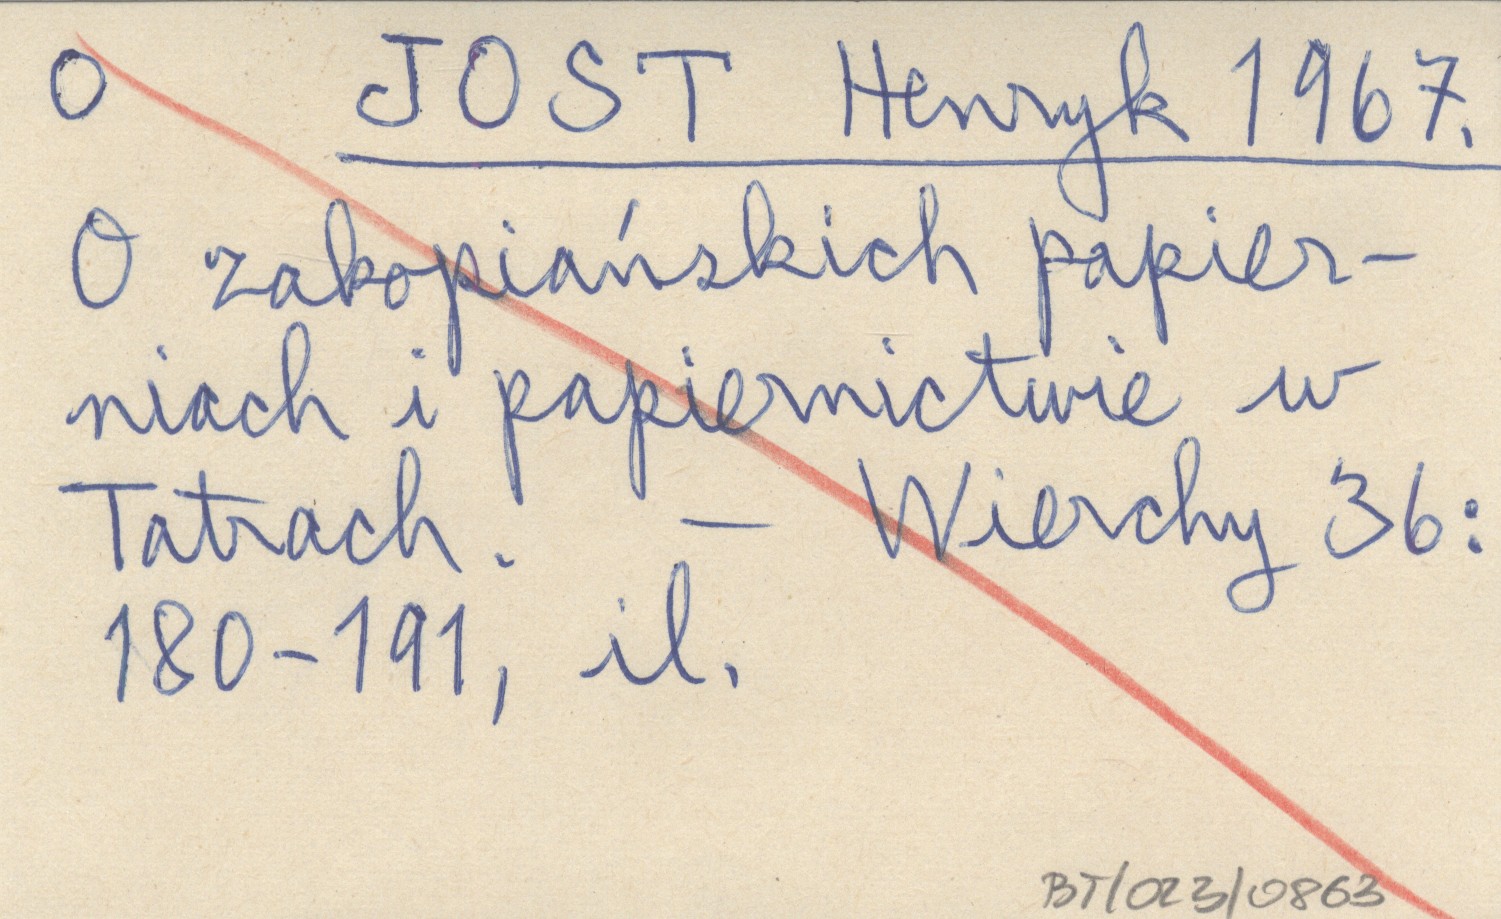 O JOST Henryk 1967.
O zakopiańskich papier-
niach i papiernictwie w
Tatrach. — Wierchy 36:
180-191, il.
BT/023/0863